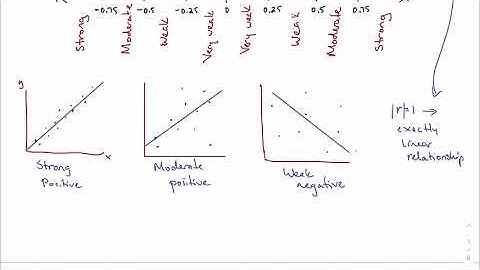 -0.75 -0.5 -0.25 0 0.25 0.5 0.75
Strong Moderate Weak Very weak Very weak Weak Moderate Strong
y
x
Strong
Positive
Moderate
positive
Weak
negative
|r|=1 →
exactly
linear
relationship